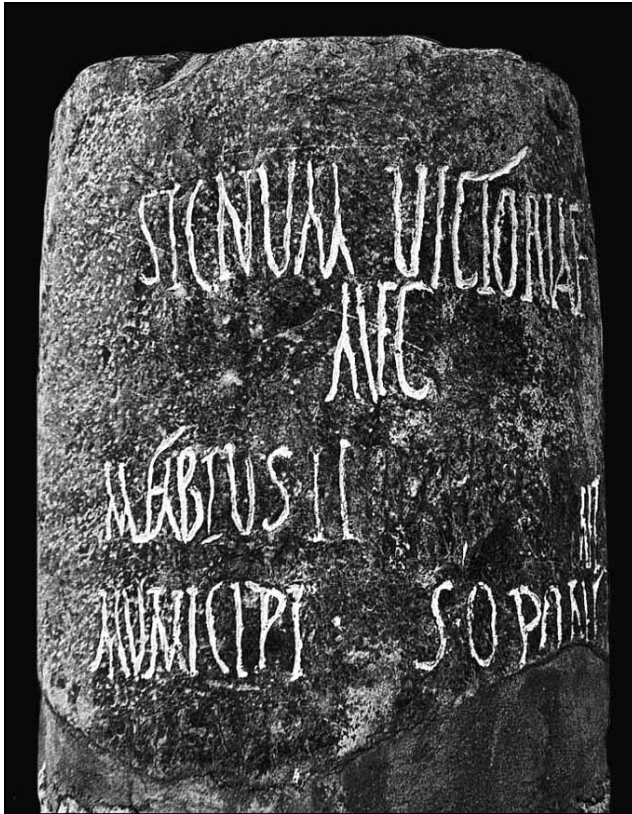 SIGNUM UICTORIAE
AUG
M FABIUS II
MUNICIPI · S·O